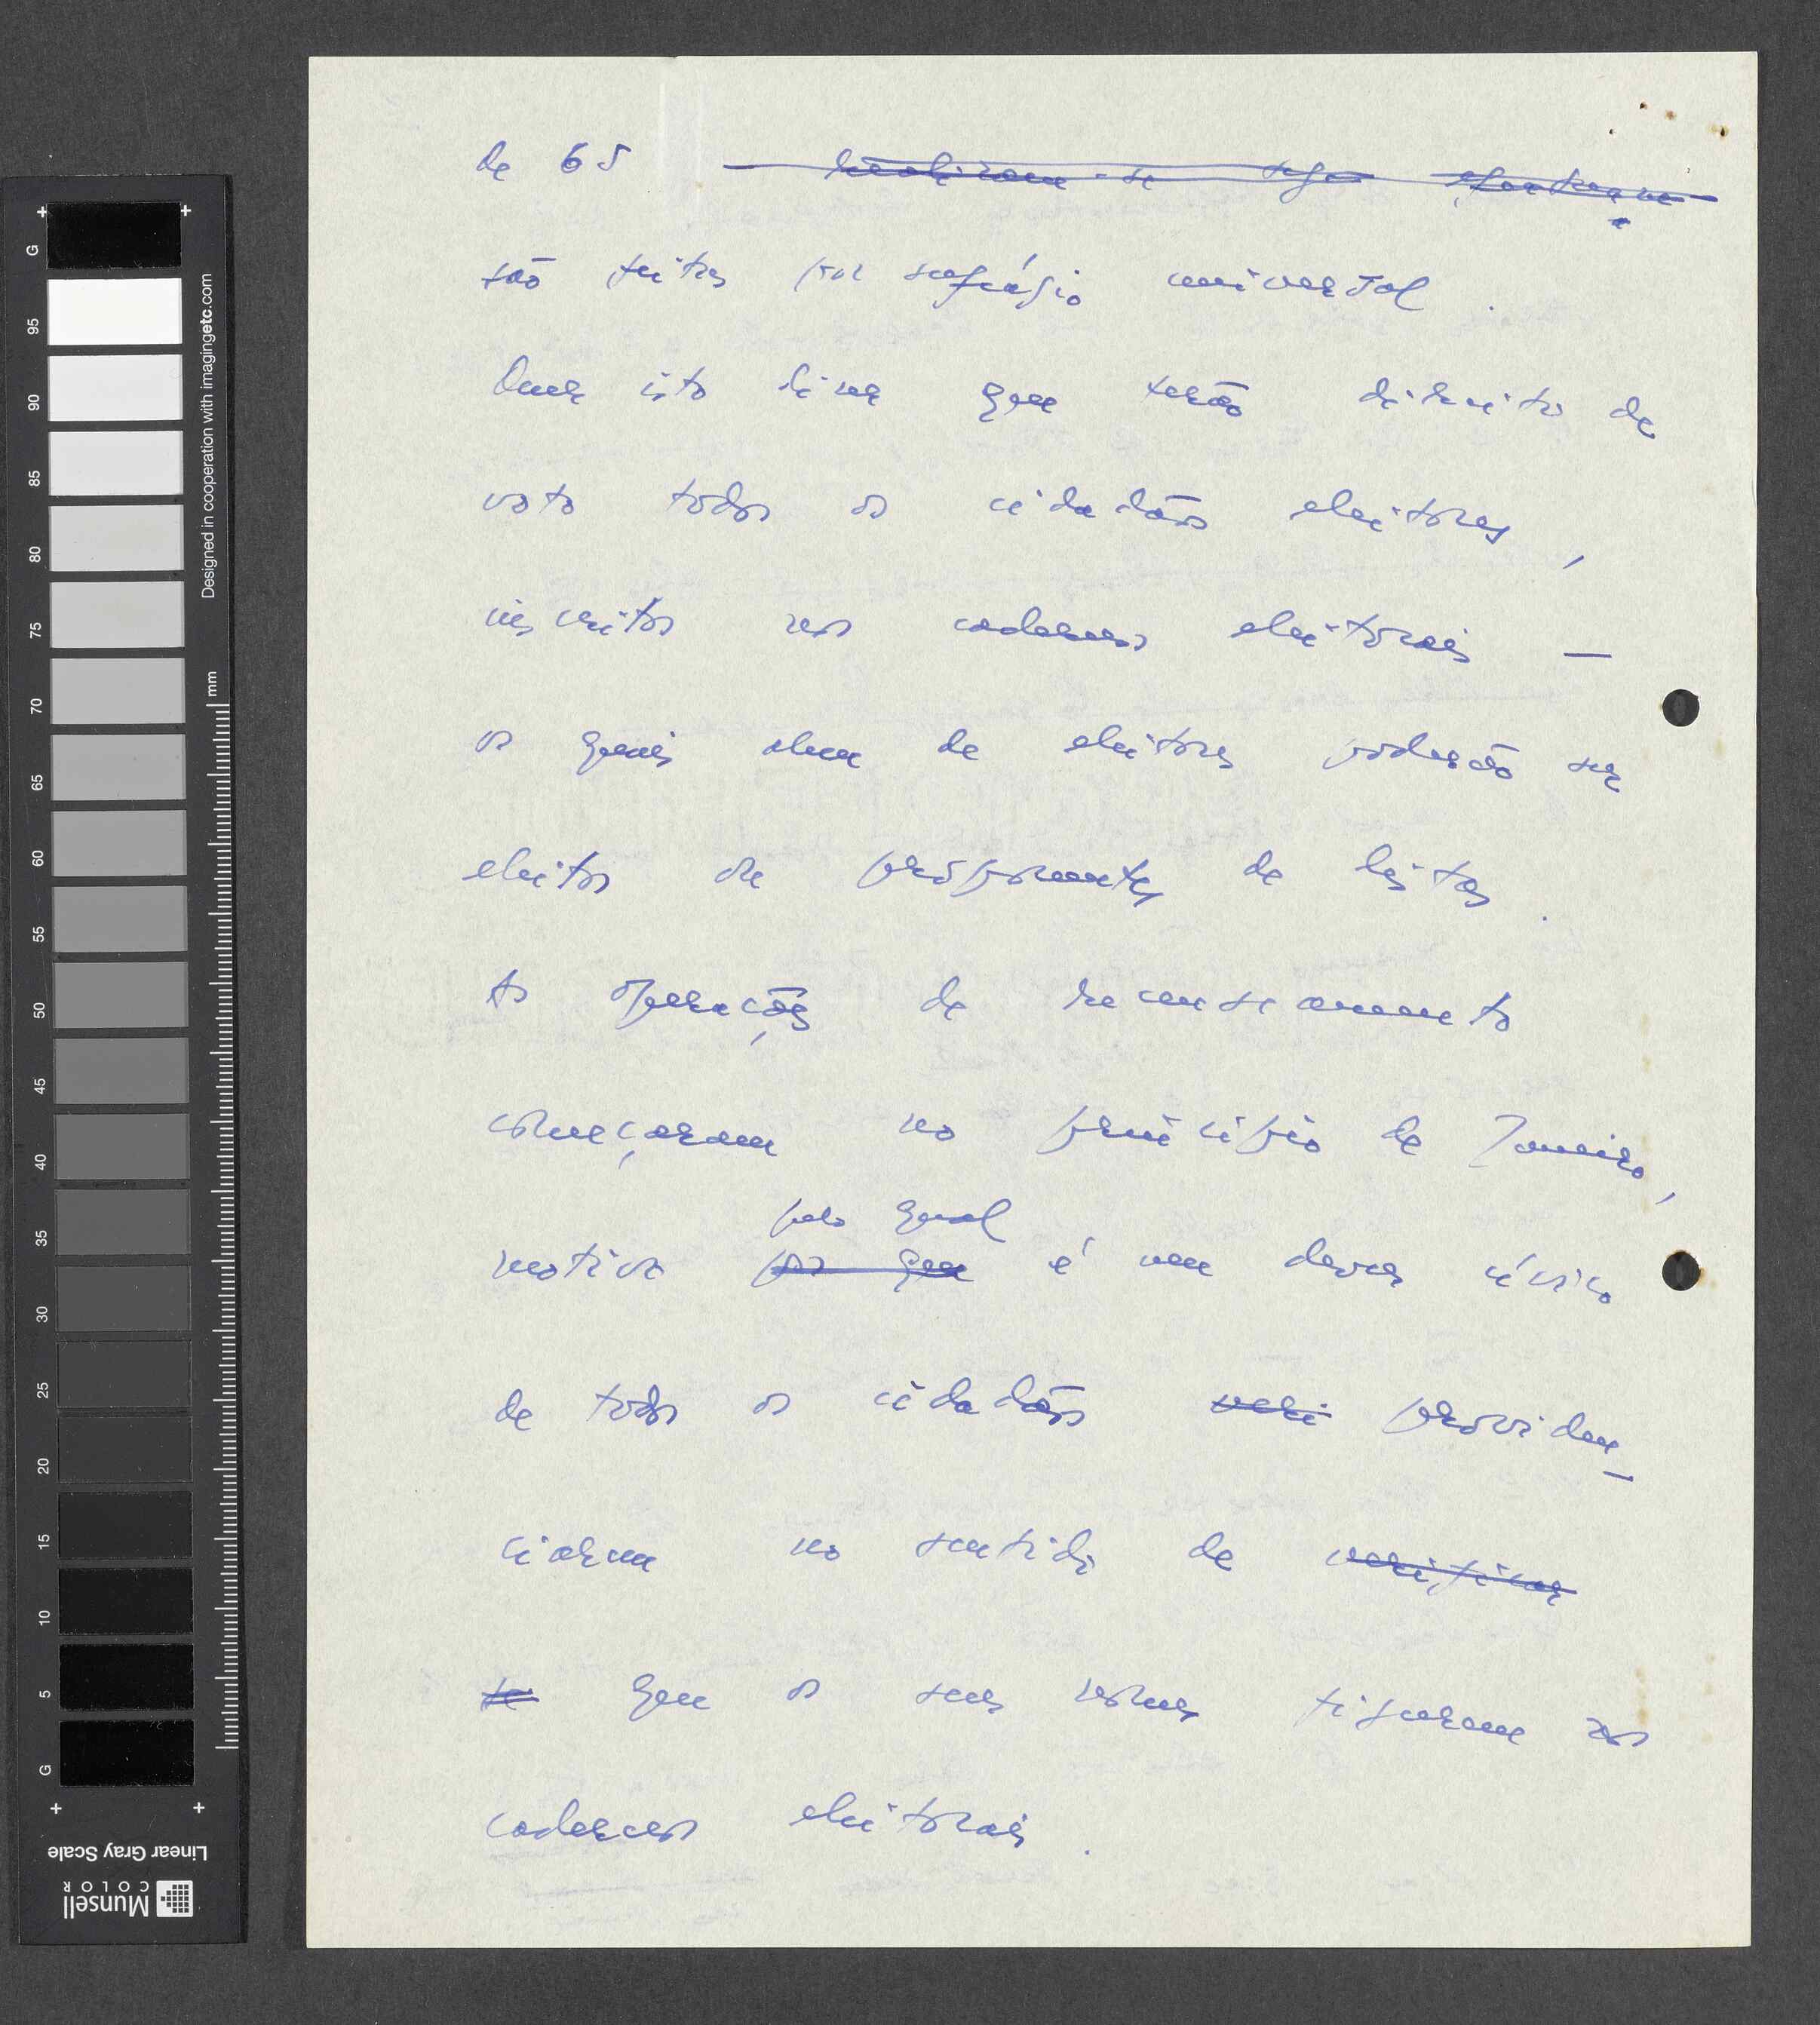 de 65 — realizam-se
são feitas por sufrágio universal.
Quer isto dizer que terão direito de
voto todos os cidadãos eleitores,
inscritos nos cadernos eleitorais —
os quais alem de eleitores poderão ser
eleitos ou proponentes de listas.
As operações de recenseamento
começaram no princípio de Janeiro,
pelo qual
motivo por que é um dever cívico
de todos os cidadãos veri providen-
ciarem no sentido de verificar
se que os seus nomes figurem nos
cadernos eleitorais.
G 95 90 85 80 75 70 65 60 55 50 45 40 35 30 25 20 15 10 5 G
Designed in cooperation with imagingetc.com
mm
Linear Gray Scale
Munsell
COLOR